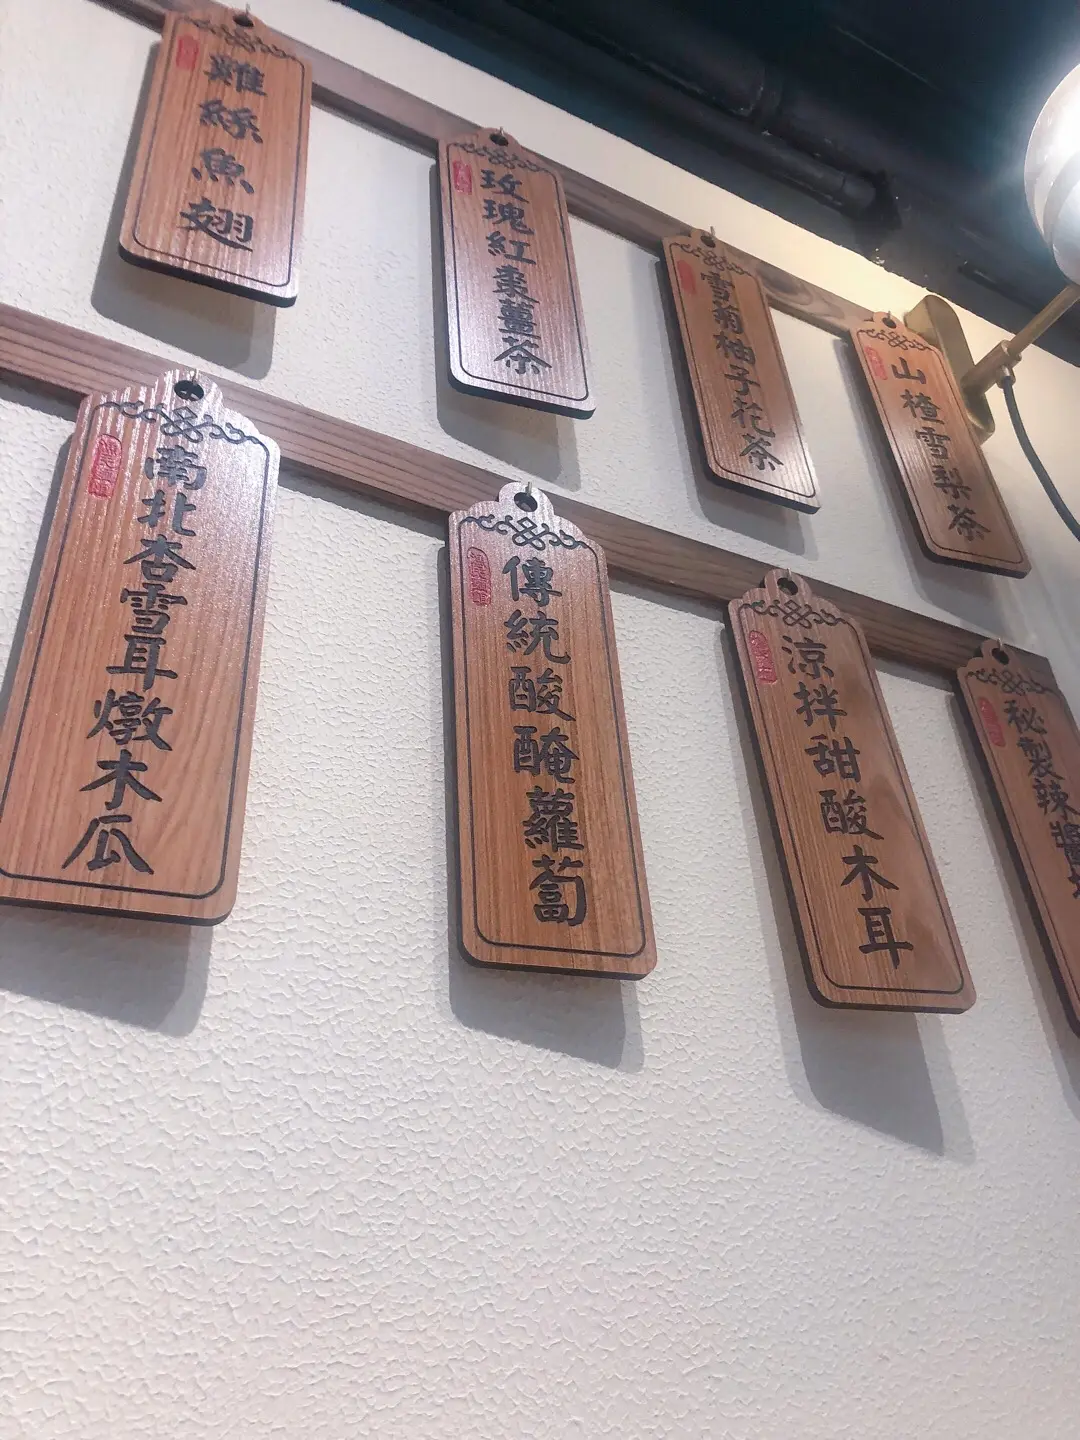 雞絲魚翅
玫瑰紅棗薑茶
雪菊柚子花茶
山楂雪梨茶
南北杏雪耳燉木瓜
傳統酸醃蘿蔔
涼拌甜酸木耳
秘製辣醬